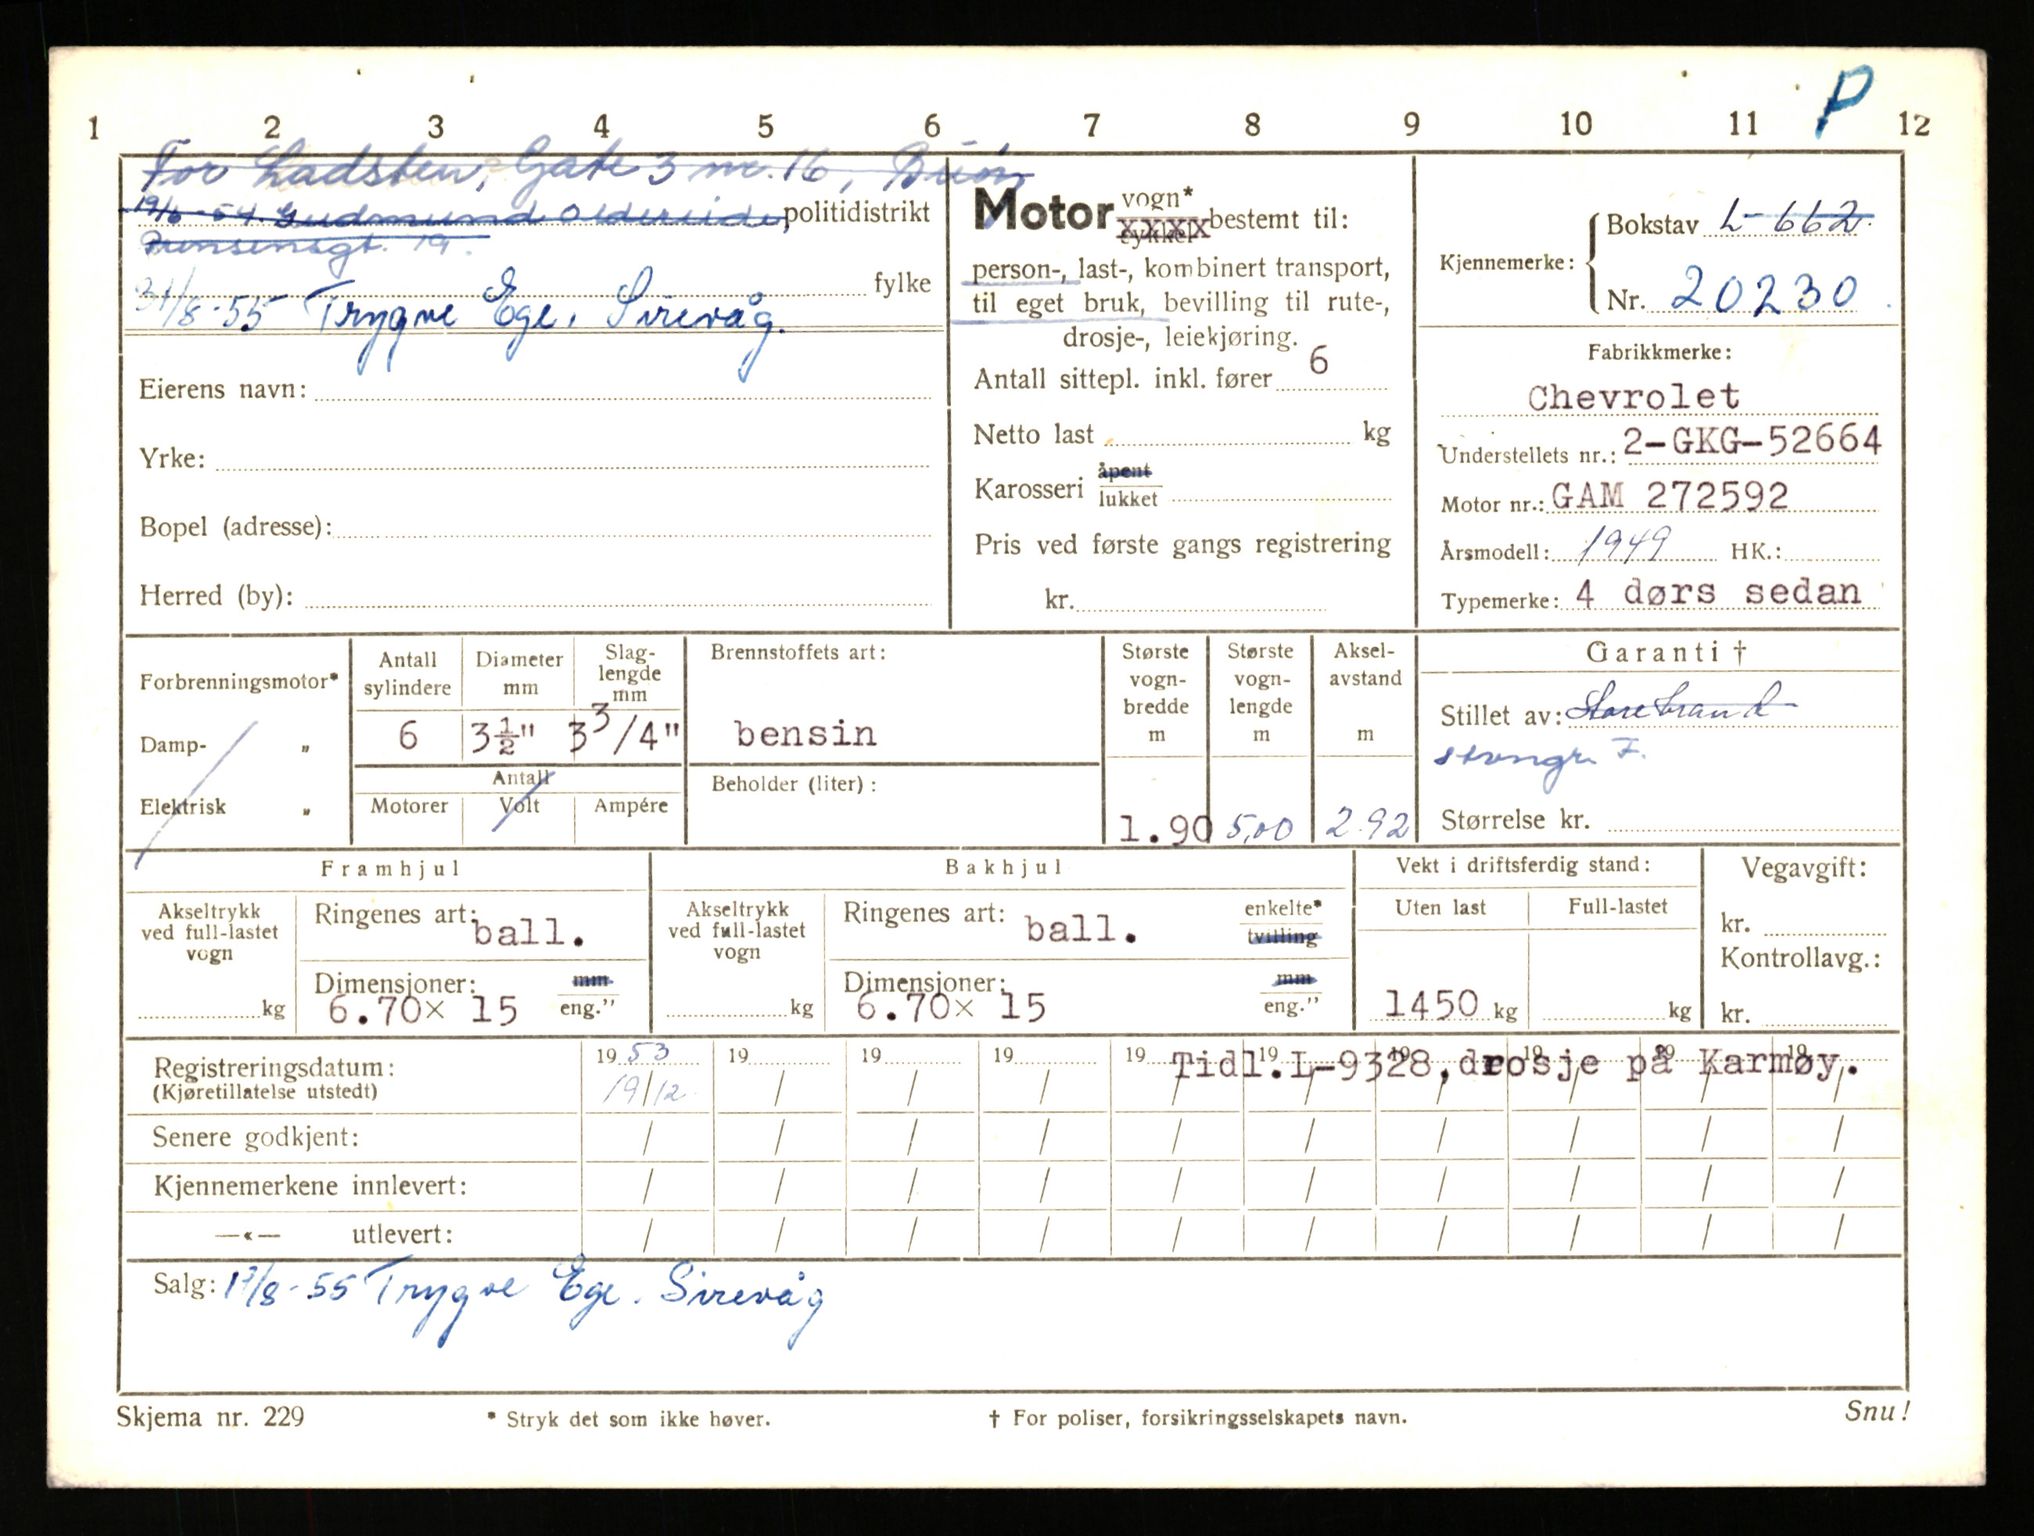 P
1 2 3 4 5 6 7 8 9 10 11 12
Tor Ladsten, Gate 3 nr. 16,
19/6-54. Gudmund politidistrikt
19.
fylke
31/8-55 Trygve Ege, Sirevåg.
Eierens navn:
Yrke:
Bopel (adresse):
Herred (by):
Motor vogn* xxxx bestemt til:
person-, last-, kombinert transport,
til eget bruk, bevilling til rute-,
drosje-, leiekjøring.
Antall sittepl. inkl. fører 6
Netto last kg
Karosseri åpent lukket
Pris ved første gangs registrering
kr.
Kjennemerke: Bokstav L-662
Nr. 20230
Fabrikkmerke:
Chevrolet
Understellets nr.: 2-GKG-52664
Motor nr.: GAM 272592
Årsmodell: 1949 HK.:
Typemerke: 4 dørs sedan
Forbrenningsmotor*
Damp- „
Elektrisk „
Antall sylindere
6
Diameter mm
3½"
Slag-lengde mm
3 3/4"
Antall
Motorer Volt Ampére
Brennstoffets art:
bensin
Beholder (liter):
Største vogn-bredde m
1.90
Største vogn-lengde m
5,00
Aksel-avstand m
2.92
Garanti †
Stillet av: Storebrand
Størrelse kr.
Framhjul
Akseltrykk ved full-lastet vogn
kg
Ringenes art: ball.
Dimensjoner: mm
6.70x 15 eng."
Bakhjul
Akseltrykk ved full-lastet vogn
kg
Ringenes art: ball. enkelte* tvilling
Dimensjoner: mm
6.70x 15 eng."
Vekt i driftsferdig stand:
Uten last Full-lastet
1450 kg kg
Vegavgift:
kr.
Kontrollavg.:
kr.
Registreringsdatum: 19 53 19 19 19 19 19 19 19 19 19
Tidl.L-9328,drosje på Karmøy.
(Kjøretillatelse utstedt) 19/12 / / / / / / / / /
Senere godkjent: / / / / / / / / / /
Kjennemerkene innlevert: / / / / / / / / / /
—«— utlevert: / / / / / / / / / /
Salg: 17/8-55 Trygve Ege. Sirevåg
Skjema nr. 229 * Stryk det som ikke høver. † For poliser, forsikringsselskapets navn. Snu!